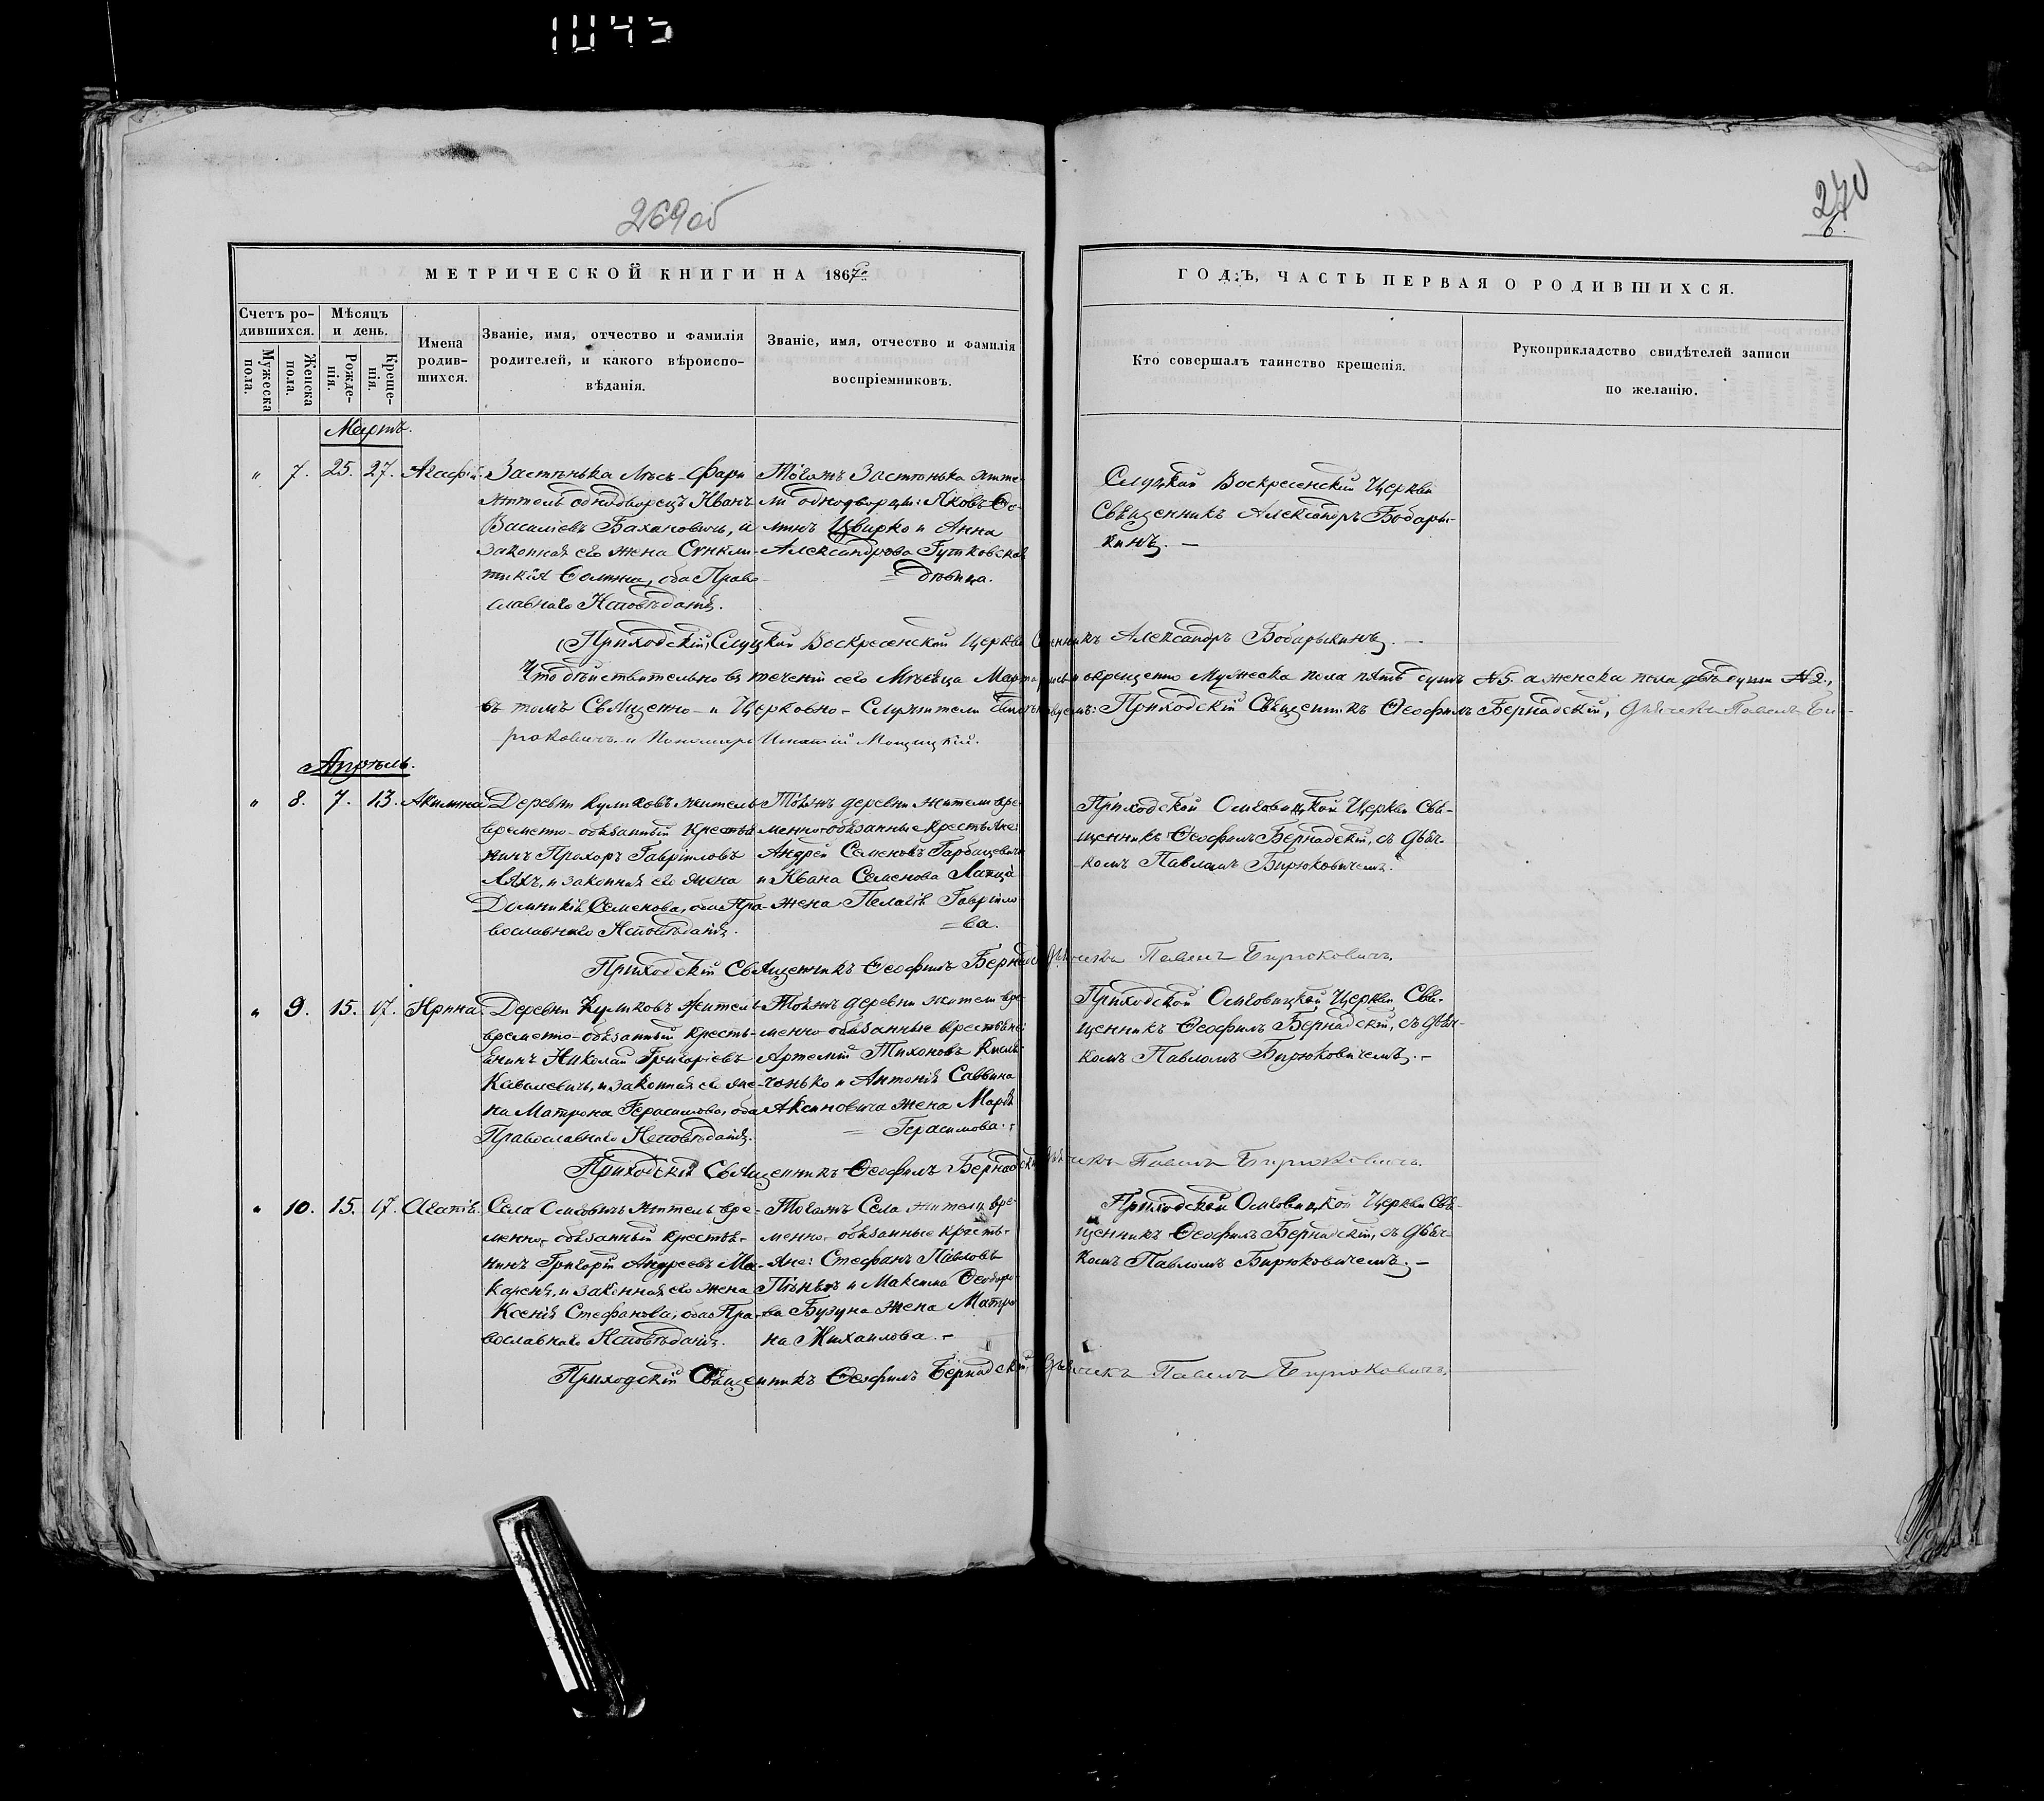 1043
269об
270
6.
МЕТРИЧЕСКОЙ КНИГИ НА 1867й
ГОДЪ, ЧАСТЬ ПЕРВАЯ О РОДИВШИХСЯ.
Счетъ родившихся.
Мужеска пола.
Женска пола.
Мѣсяцъ и день.
Рожденія.
Крещенія.
Имена родившихся.
Званіе, имя, отчество и фамилія
родителей, и какого вѣроиспо-
вѣданія.
Званіе, имя, отчество и фамилія
воспріемниковъ.
Кто совершалъ таинство крещенія.
Рукоприкладство свидѣтелей записи
по желанію.
Мартъ.
" 7. 25. 27. Агафія.
Застѣнька Лѣсъ-Фарн
житель однодворецъ Иванъ
Василіевъ Бахановичъ, и
законная его жена
Ѳомина, оба Право-
славнаго Исповѣданія.
Тогожъ Застѣнька жите-
ли однодворцы: Яковъ Ѳо-
минъ Цвирко и Анна
Александрова Гутковская
= дѣвица.
Слуцкой Воскресенской Церкви
Священникъ Александръ Бобары-
кинъ. —
Приходскій Слуцкой Воскресенской Церкви Священникъ Александръ Бобарыкинъ. —
Что дѣйствительно въ теченіи сего Мѣсяца Марта окрещено Мужеска пола пять душъ №5. а женска пола двѣ души №2.,
въ томъ Священно- и Церковно-Служители: Приходскій Священникъ Ѳеофилъ Бернадскій, Дьячекъ Павелъ Би-
рюковичъ и Пономарь Игнатій Мощицкій.
Апрѣль.
" 8. 7. 13. Акилина
Деревни Куликовъ житель
временно-обязанный Крестья-
нинъ Прохоръ Гавріиловъ
Ляхъ, и законная его жена
Домникія Семенова, оба Пра-
вославнаго Исповѣданія.
Тойжъ деревни жители вре-
менно-обязанные Крестьяне:
Андрей Семеновъ Гарбацевичъ
и Ивана Семенова Лапца
жена Пелагія Гавріило-
= ва.
Приходской Омговицкой Церкви Свя-
щенникъ Ѳеофилъ Бернадскій, съ Дьяч-
комъ Павломъ Бирюковичемъ.
Приходскій Священникъ Ѳеофилъ Бернадскій Дьячекъ Павелъ Бирюковичъ.
" 9. 15. 17. Ирина.
Деревни Куликовъ житель
временно-обязанный кресть-
янинъ Николай Григоріевъ
Кавалевичъ, и законная его же-
на Матрона Герасимова, оба
Православнаго Исповѣданія.
Тойжъ деревни жители вре-
менно-обязанные крестьяне:
Артемій Тихоновъ Кисле-
чонько и Антонія Саввина
Аксиновича жена Марія
= Герасимова.
Приходской Омговицкой Церкви Свя-
щенникъ Ѳеофилъ Бернадскій, съ Дьяч-
комъ Павломъ Бирюковичемъ. —
Приходскій Священникъ Ѳеофилъ Бернадскій Дьячекъ Павелъ Бирюковичъ.
" 10. 15. 17. Агапія.
Села Омговичъ житель вре-
менно-обязанный крестья-
нинъ Григорій Андреевъ Ма-
кареня, и законная его жена
Ксенія Стефанова, оба Пра-
вославнаго Исповѣданія.
Тогожъ Села жители вре-
менно-обязанные кресть-
яне: Стефанъ Павловъ
и Максима Ѳеодоро-
ва Бузуна жена Матро-
на Михаилова. —
Приходской Омговицкой Церкви Свя-
щенникъ Ѳеофилъ Бернадскій, съ Дьяч-
комъ Павломъ Бирюковичемъ. —
Приходскій Священникъ Ѳеофилъ Бернадскій, Дьячекъ Павелъ Бирюковичъ.